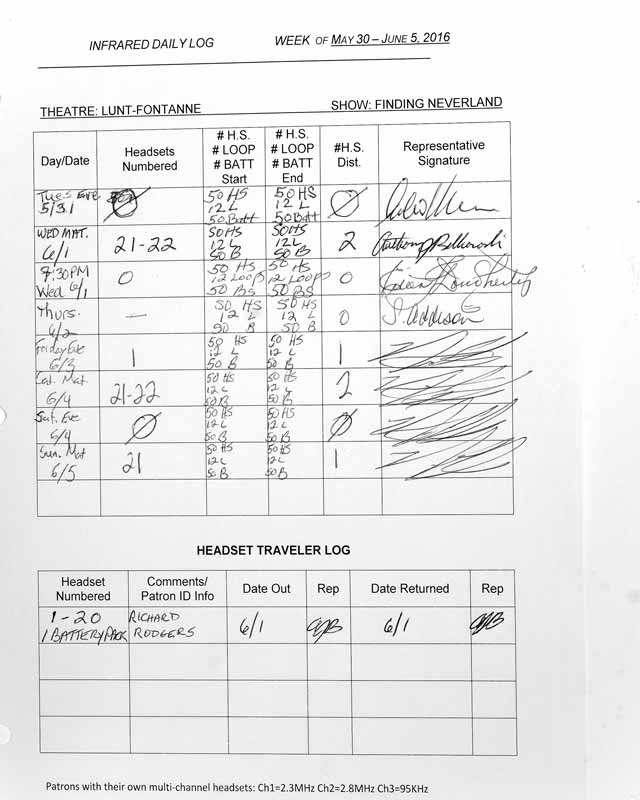 INFRARED DAILY LOG WEEK OF MAY 30 – JUNE 5, 2016
THEATRE: LUNT-FONTANNE SHOW: FINDING NEVERLAND
Day/Date Headsets Numbered # H.S. # LOOP # BATT Start # H.S. # LOOP # BATT End #H.S. Dist. Representative Signature
Tues Eve 5/31 Ø 50 HS 12 L 50 Batt 50 HS 12 L 50 Batt Ø
WED MAT. 6/1 21-22 50HS 12 L 50 B 50HS 12 L 50 B 2 Anthony
7:30PM Wed 6/1 0 50 HS 12 LOOP 50 BS 50 HS 12 LOOP 50 BS 0
Thurs. 6/2 — 50 HS 12 L 50 B 50 HS 12 L 50 B 0 S. Addison
Friday Eve 6/3 1 50 HS 12 L 50 B 50 HS 12 L 50 B 1
Sat. Mat. 6/4 21-22 50 HS 12 L 50 B 50 HS 12 L 50 B 2
Sat. Eve 6/4 Ø 50 HS 12 L 50 B 50 HS 12 L 50 B Ø
Sun. Mat 6/5 21 50 HS 12 L 50 B 50 HS 12 L 50 B 1
HEADSET TRAVELER LOG
Headset Numbered Comments/ Patron ID Info Date Out Rep Date Returned Rep
1-20 RICHARD 6/1 6/1
1 BATTERY PACK RODGERS
Patrons with their own multi-channel headsets: Ch1=2.3MHz Ch2=2.8MHz Ch3=95KHz